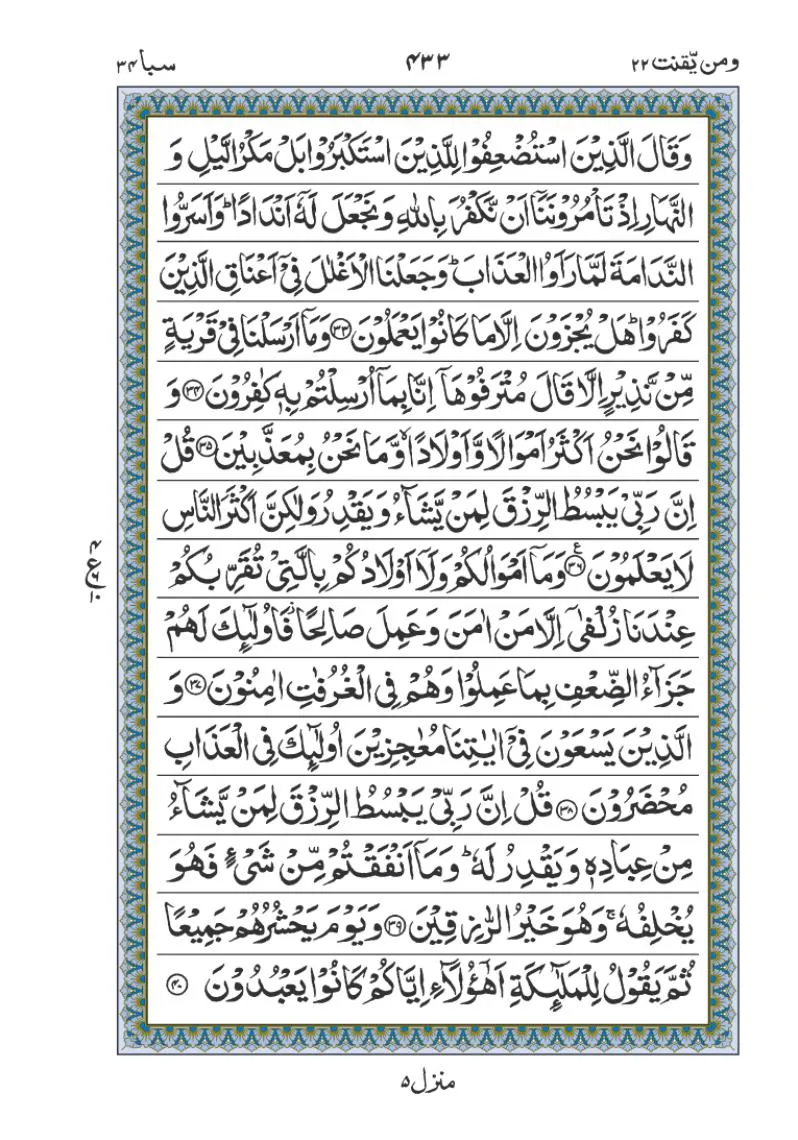 ومن یّقنت ۲۲
۴۳۳
سبا ۳۴
وَقَالَ الَّذِيْنَ اسْتُضْعِفُوْا لِلَّذِيْنَ اسْتَكْبَرُوْا بَلْ مَكْرُ الَّيْلِ وَ
النَّهَارِ اِذْ تَاْمُرُوْنَنَاۤ اَنْ نَّكْفُرَ بِاللّٰهِ وَ نَجْعَلَ لَهٗۤ اَنْدَادًا ؕ وَاَسَرُّوا
النَّدَامَةَ لَمَّا رَاَوُا الْعَذَابَ ؕ وَجَعَلْنَا الْاَغْلٰلَ فِيْۤ اَعْنَاقِ الَّذِيْنَ
كَفَرُوْا ؕ هَلْ يُجْزَوْنَ اِلَّا مَا كَانُوْا يَعْمَلُوْنَ ۳۳ وَمَاۤ اَرْسَلْنَا فِيْ قَرْيَةٍ
مِّنْ نَّذِيْرٍ اِلَّا قَالَ مُتْرَفُوْهَاۤ اِنَّا بِمَاۤ اُرْسِلْتُمْ بِهٖ كٰفِرُوْنَ ۳۴ وَ
قَالُوْا نَحْنُ اَكْثَرُ اَمْوَالًا وَّاَوْلَادًا ۙ وَّمَا نَحْنُ بِمُعَذَّبِيْنَ ۳۵ قُلْ
اِنَّ رَبِّيْ يَبْسُطُ الرِّزْقَ لِمَنْ يَّشَآءُ وَيَقْدِرُ وَلٰكِنَّ اَكْثَرَ النَّاسِ
لَا يَعْلَمُوْنَ ۳۶ ع وَمَاۤ اَمْوَالُكُمْ وَلَاۤ اَوْلَادُكُمْ بِالَّتِيْ تُقَرِّبُكُمْ
عِنْدَنَا زُلْفٰۤى اِلَّا مَنْ اٰمَنَ وَعَمِلَ صَالِحًا ؗ فَاُولٰٓئِكَ لَهُمْ
جَزَآءُ الضِّعْفِ بِمَا عَمِلُوْا وَهُمْ فِي الْغُرُفٰتِ اٰمِنُوْنَ ۳۷ وَ
الَّذِيْنَ يَسْعَوْنَ فِيْۤ اٰيٰتِنَا مُعٰجِزِيْنَ اُولٰٓئِكَ فِي الْعَذَابِ
مُحْضَرُوْنَ ۳۸ قُلْ اِنَّ رَبِّيْ يَبْسُطُ الرِّزْقَ لِمَنْ يَّشَآءُ
مِنْ عِبَادِهٖ وَيَقْدِرُ لَهٗ ؕ وَمَاۤ اَنْفَقْتُمْ مِّنْ شَيْءٍ فَهُوَ
يُخْلِفُهٗ ۚ وَهُوَ خَيْرُ الرّٰزِقِيْنَ ۳۹ وَيَوْمَ يَحْشُرُهُمْ جَمِيْعًا
ثُمَّ يَقُوْلُ لِلْمَلٰٓئِكَةِ اَهٰۤؤُلَآءِ اِيَّاكُمْ كَانُوْا يَعْبُدُوْنَ ۴۰
منزل ۵